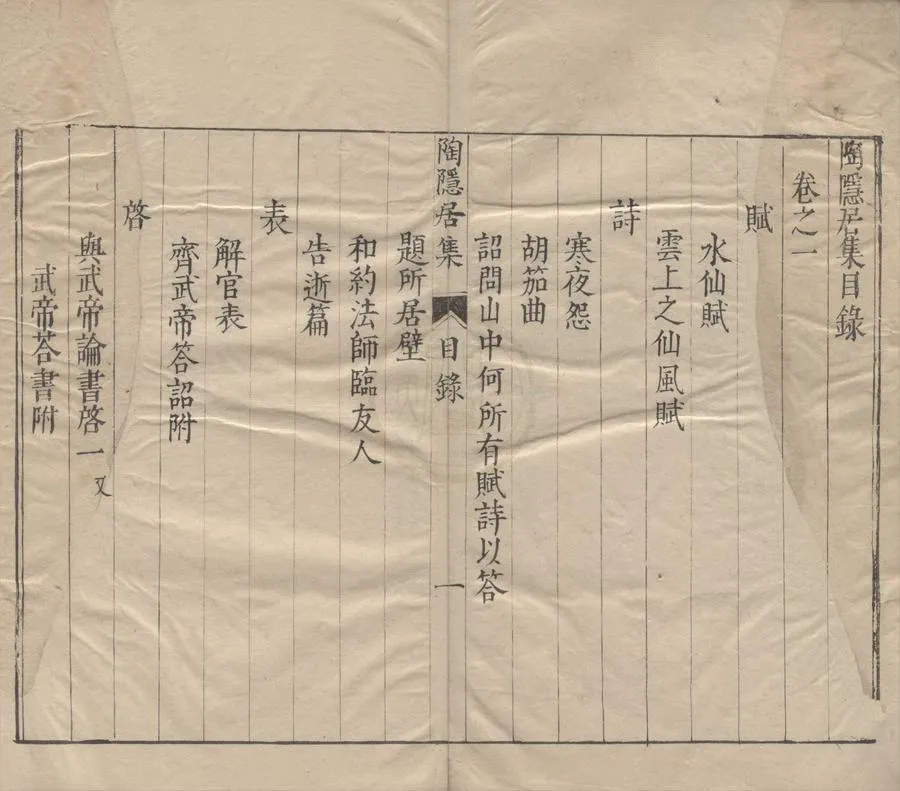 陶隱居集目錄
卷之一
賦
水仙賦
雲上之仙風賦
詩
寒夜怨
胡笳曲
詔問山中何所有賦詩以答
陶隱居集 目錄 一
題所居壁
和約法師臨友人
告逝篇
表
解官表
齊武帝答詔附
啓
與武帝論書啓一 又
武帝荅書附